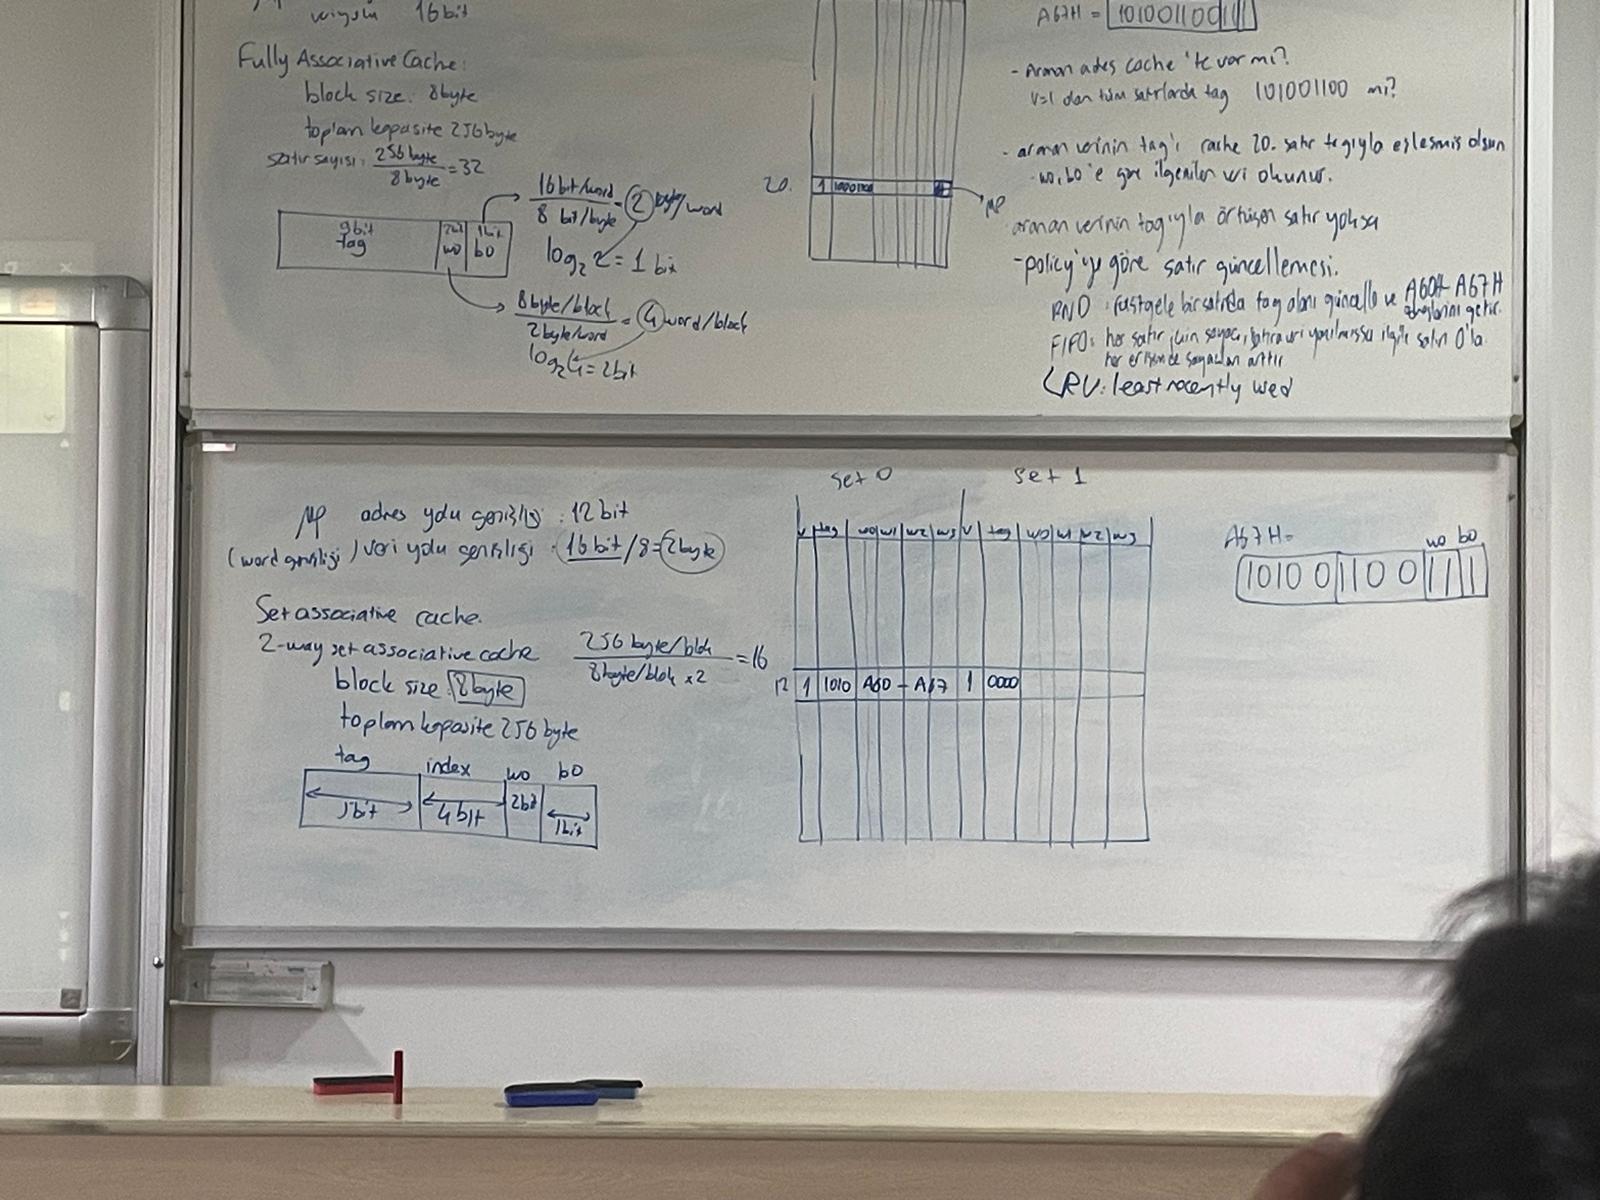 16bit
Fully Associative Cache:
block size: 8byte
toplam kapasite 256byte
satır sayısı: 256byte / 8byte = 32
9bit tag
2bit wo
1bit bo
16bit/word / 8 bit/byte = 2 byte/word
log₂2 = 1 bit
8byte/block / 2byte/word = 4 word/block
log₂4 = 2bit
20.
1
μP
A67H = 101001100111
- Aranan adres cache'te var mı?
V=1 olan tüm satırlarda tag 101001100 mı?
- aranan verinin tag'i cache 20. satır tagıyla eşleşmiş olsun
wo, bo'e göre ilgenilen veri okunur.
aranan verinin tagıyla örtüşen satır yoksa
-policy'ye göre satır güncellemesi.
RND : rastgele bir satırda tag alanı güncelle ve A60H-A67H
adreslerini getir.
FIFO: her satır için sayaç, satıra veri yazılmışsa ilgili satırı 0'la
her erişimde sayaçları arttır
LRU: least recently used
μP adres yolu genişliği : 12bit
(word genişliği) veri yolu genişliği : 16bit/8=2byte
Set associative cache.
2-way set associative cache
256 byte/blok / 8byte/blok x2 = 16
block size: 8byte
toplam kapasite 256 byte
tag index wo bo
5bit 4bit 2bit 1bit
set 0 set 1
V tag w0 w1 w2 w3 V tag w0 w1 w2 w3
12 1 1010 A60 - A67 1 0000
A67H=
wo bo
10100 1100 11 1